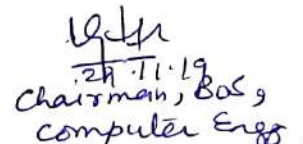 .11.19
Chairman, BoS,
computer Engg